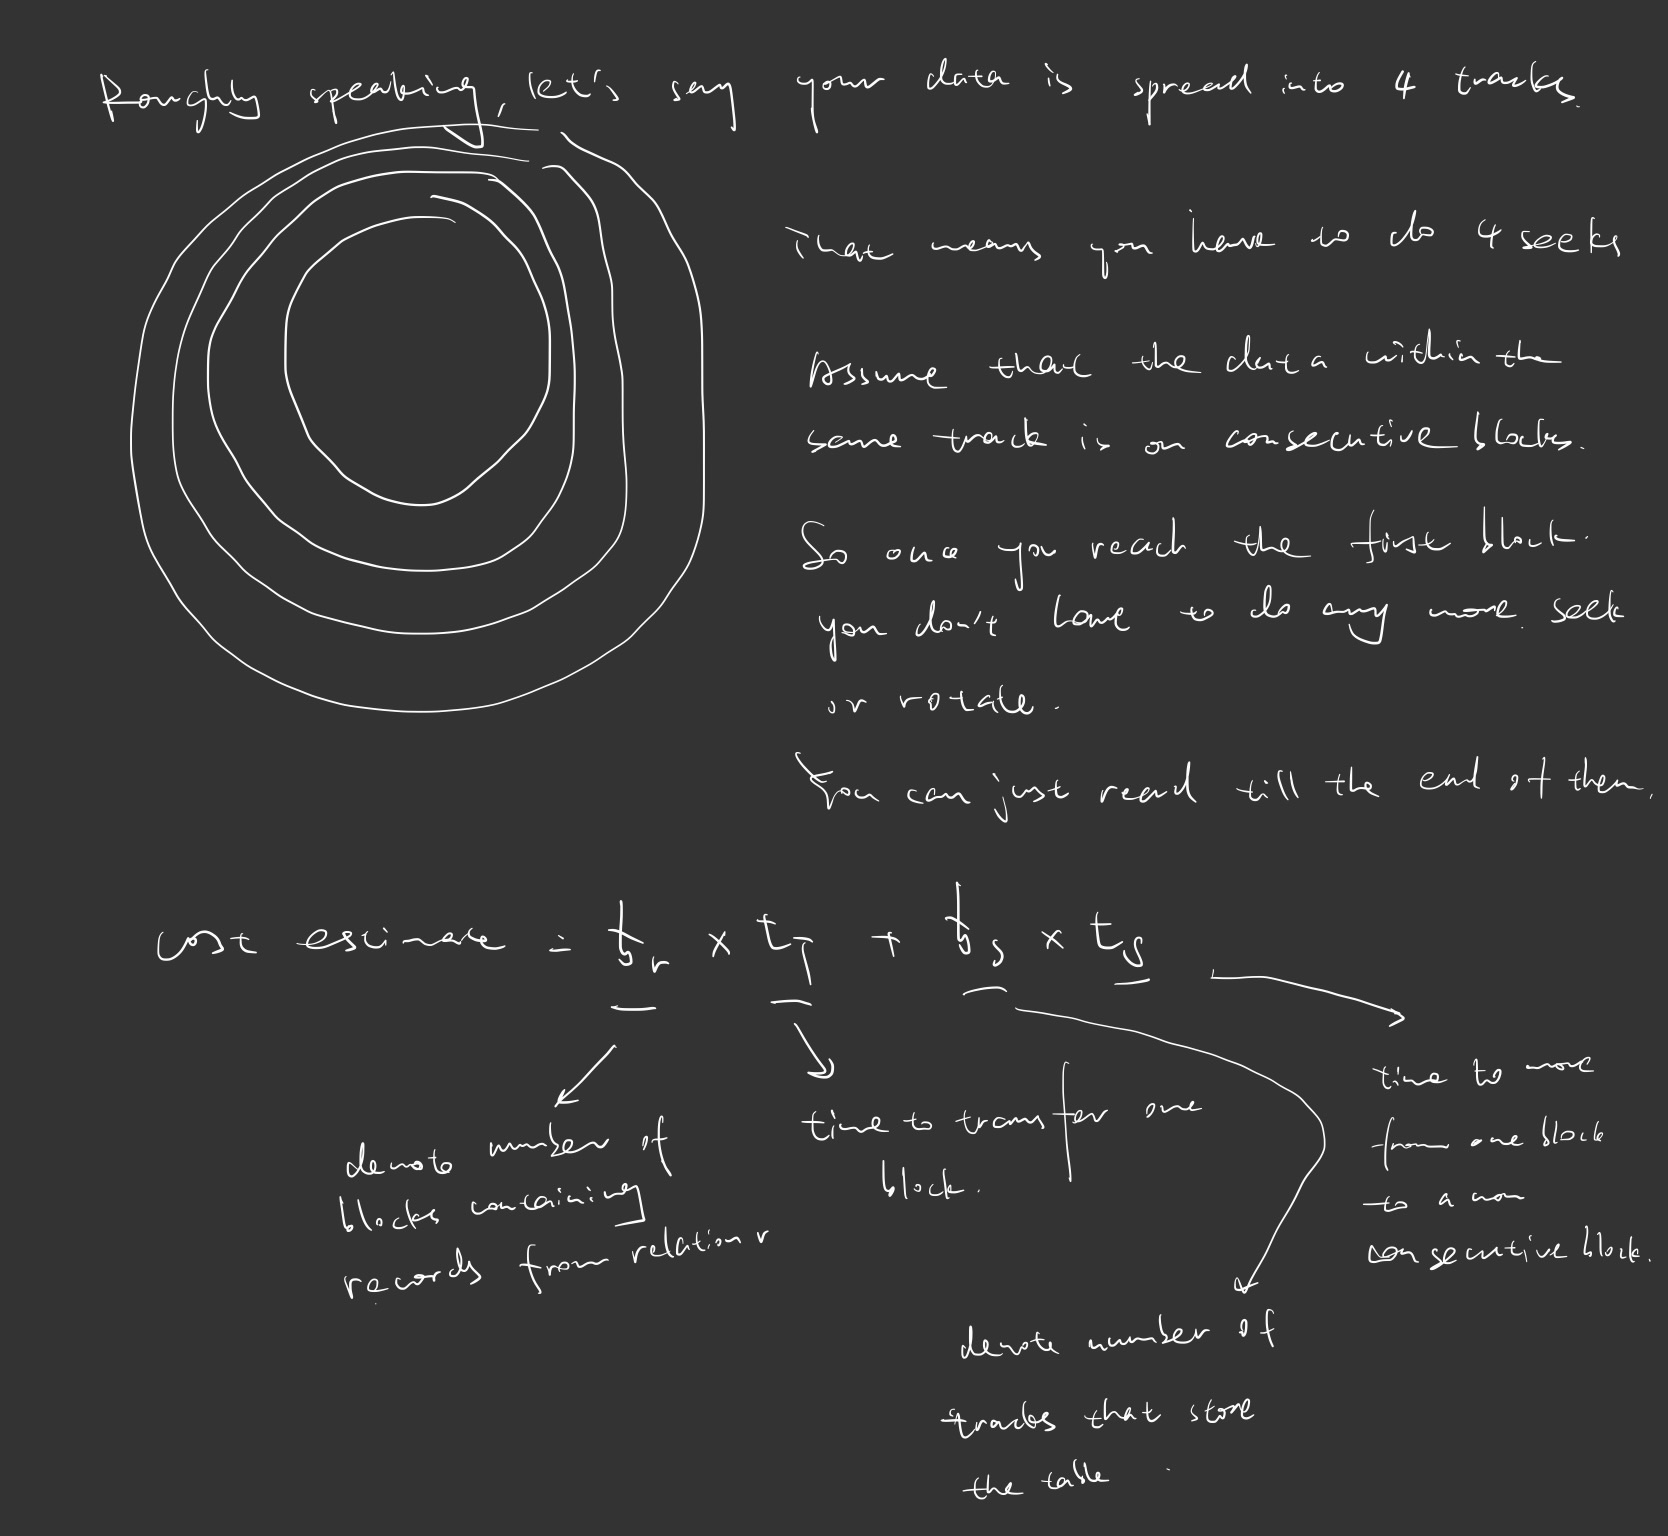 Roughly speaking, let's say your data is spread into 4 tracks.
That means you have to do 4 seeks
Assume that the data within the
same track is on consecutive blocks.
So once you reach the first block.
you don't have to do any more seek
or rotate.
You can just read till the end of them.
cost estimate = b_r × t_T + b_s × t_s
denote number of
blocks containing
records from relation r
time to transfer one
block.
denote number of
tracks that store
the table.
time to move
from one block
to a non
consecutive block.